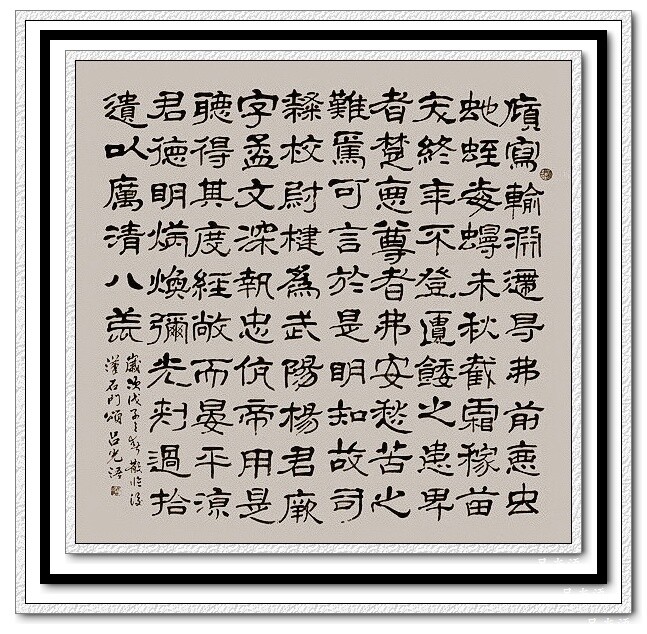 廎寫輸淵遰㝵弗前惡虫
虵蛭毒蟃未秋截霜稼苗
夭終年不登匱餧之患卑
者楚惡尊者弗安愁苦之
難焉可言於是明知故司
隸校尉楗為武陽楊君厥
字孟文深執忠伉帝用是
聽得其度經敞而晏平涼
君德明炳煥彌光刺過拾
遺以厲清八荒
歲次戊子之 臨
漢石門頌呂光